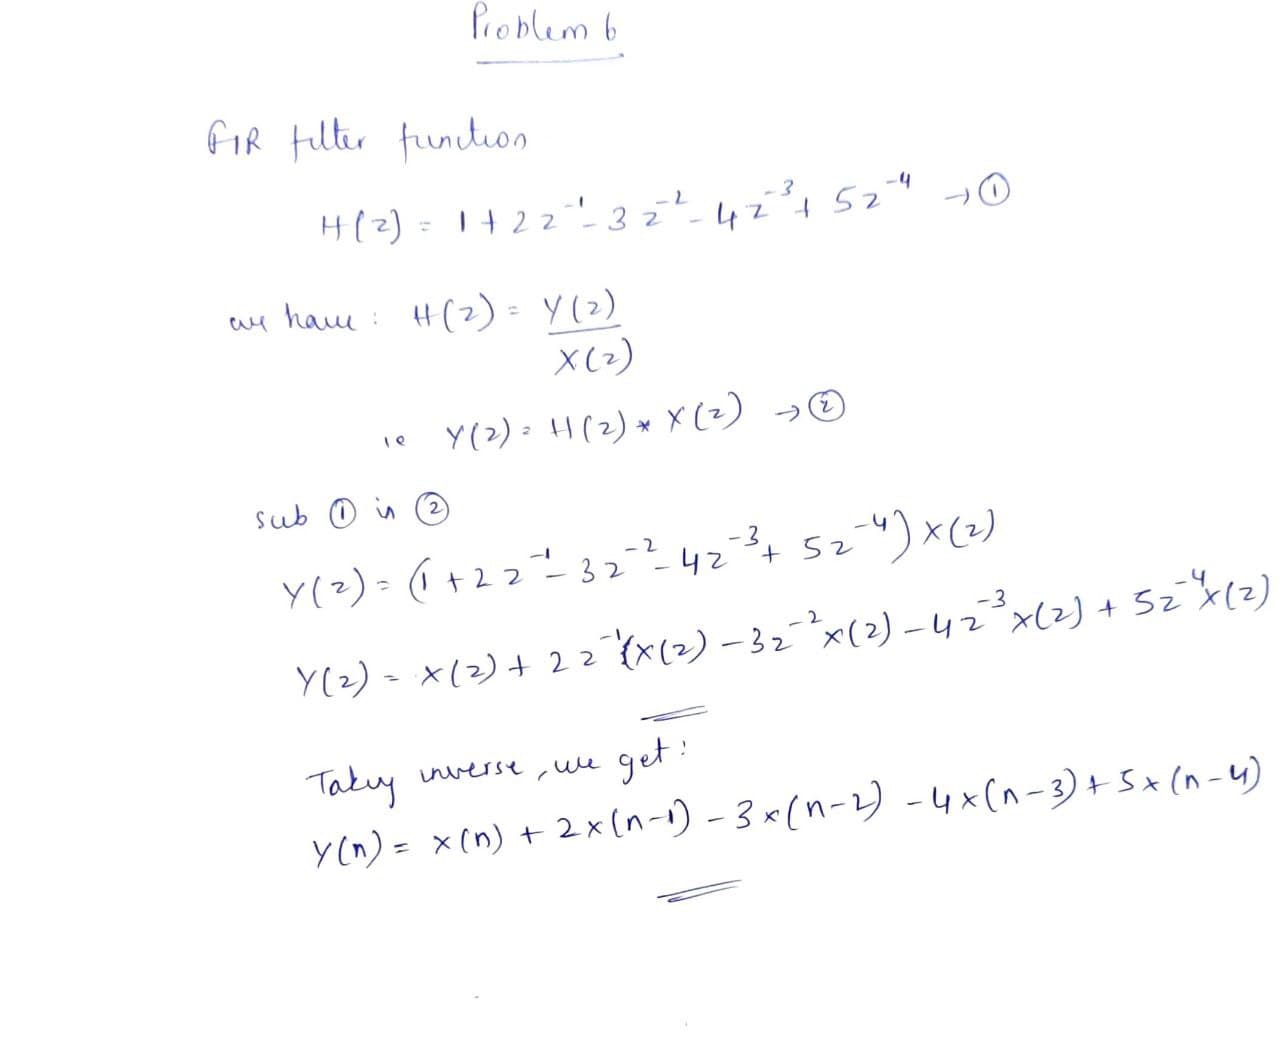 Problem 6
FIR filter function
H(z) = 1 + 2z⁻¹ - 3z⁻² - 4z⁻³ + 5z⁻⁴ → ①
we have : H(z) = Y(z)
X(z)
ie Y(z) = H(z) * X(z) → ②
sub ① in ②
Y(z) = (1 + 2z⁻¹ - 3z⁻² - 4z⁻³ + 5z⁻⁴) X(z)
Y(z) = X(z) + 2z⁻¹ X(z) - 3z⁻² X(z) - 4z⁻³ X(z) + 5z⁻⁴ X(z)
Taking inverse, we get :
Y(n) = x(n) + 2x(n-1) - 3x(n-2) - 4x(n-3) + 5x(n-4)